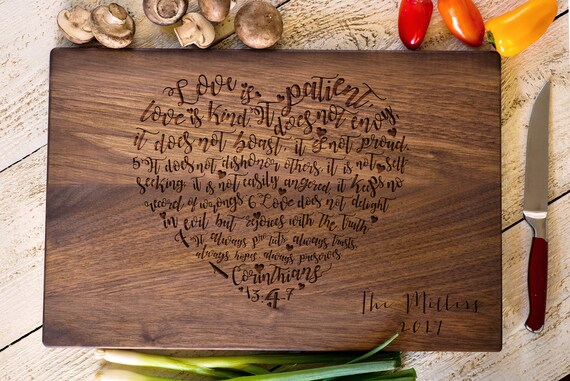 Love is patient,
love is kind. It does not envy,
it does not boast, it is not proud.
5 It does not dishonor others, it is not self
seeking, it is not easily angered, it keeps no
record of wrongs 6 Love does not delight
in evil but rejoices with the truth
7 It always protects, always trusts,
always hopes, always perseveres
1 Corinthians
13:4-7
The Millers
2017